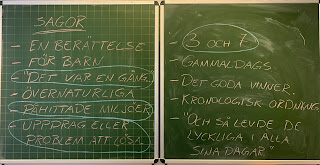 SAGOR
- EN BERÄTTELSE
- FÖR BARN
- "DET VAR EN GÅNG..
- ÖVERNATURLIGA
- PÅHITTADE MILJÖER
- UPPDRAG ELLER
PROBLEM ATT LÖSA.
- 3 OCH 7
- GAMMALDAGS.
- DET GODA VINNER.
- KRONOLOGISK ORDNING.
- "OCH SÅ LEVDE DE
LYCKLIGA I ALLA
SINA DAGAR."